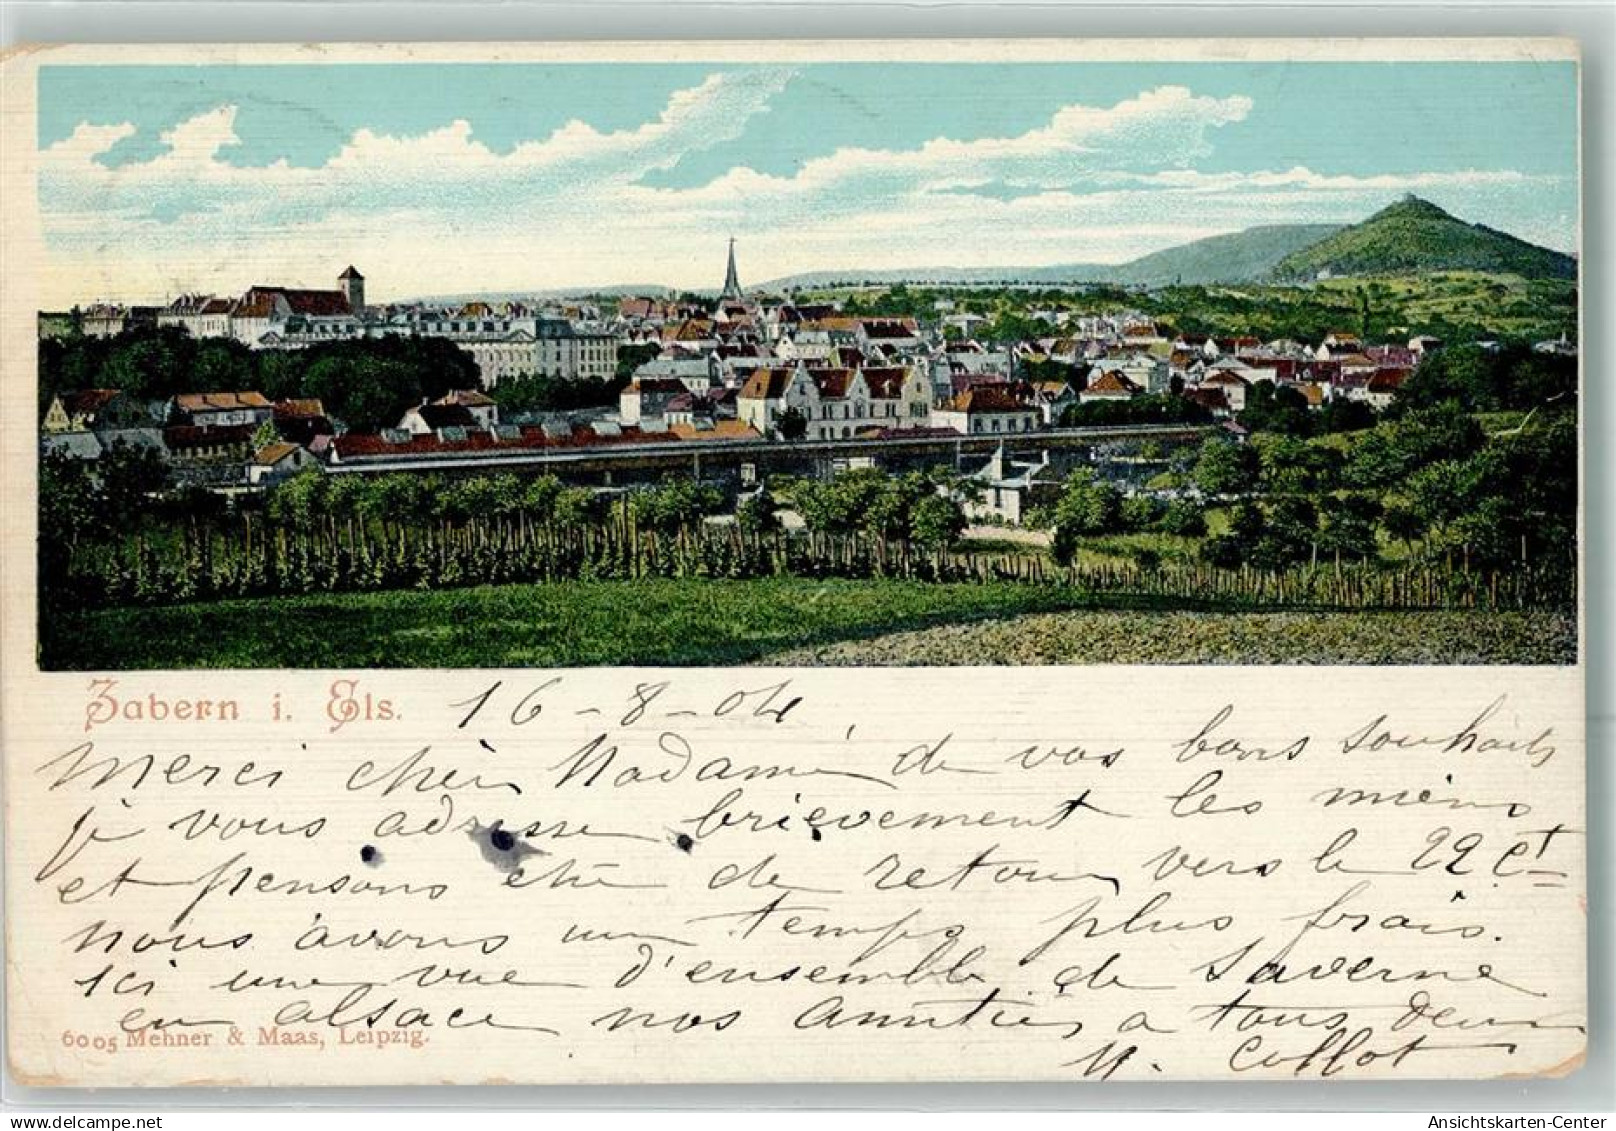 Zabern i. Els. 16-8-04
Merci chèr Madame de vos bons souhaits
je vous adresse brièvement les miens
et pensons etre de retour vers le 22 ct
nous avons un temps plus frais.
ici une vue d'ensemble de Saverne
en alsace nos Amitiés a tous deux
6005 Mehner & Maas, Leipzig.
Collot
www.delcampe.net
Ansichtskarten-Center